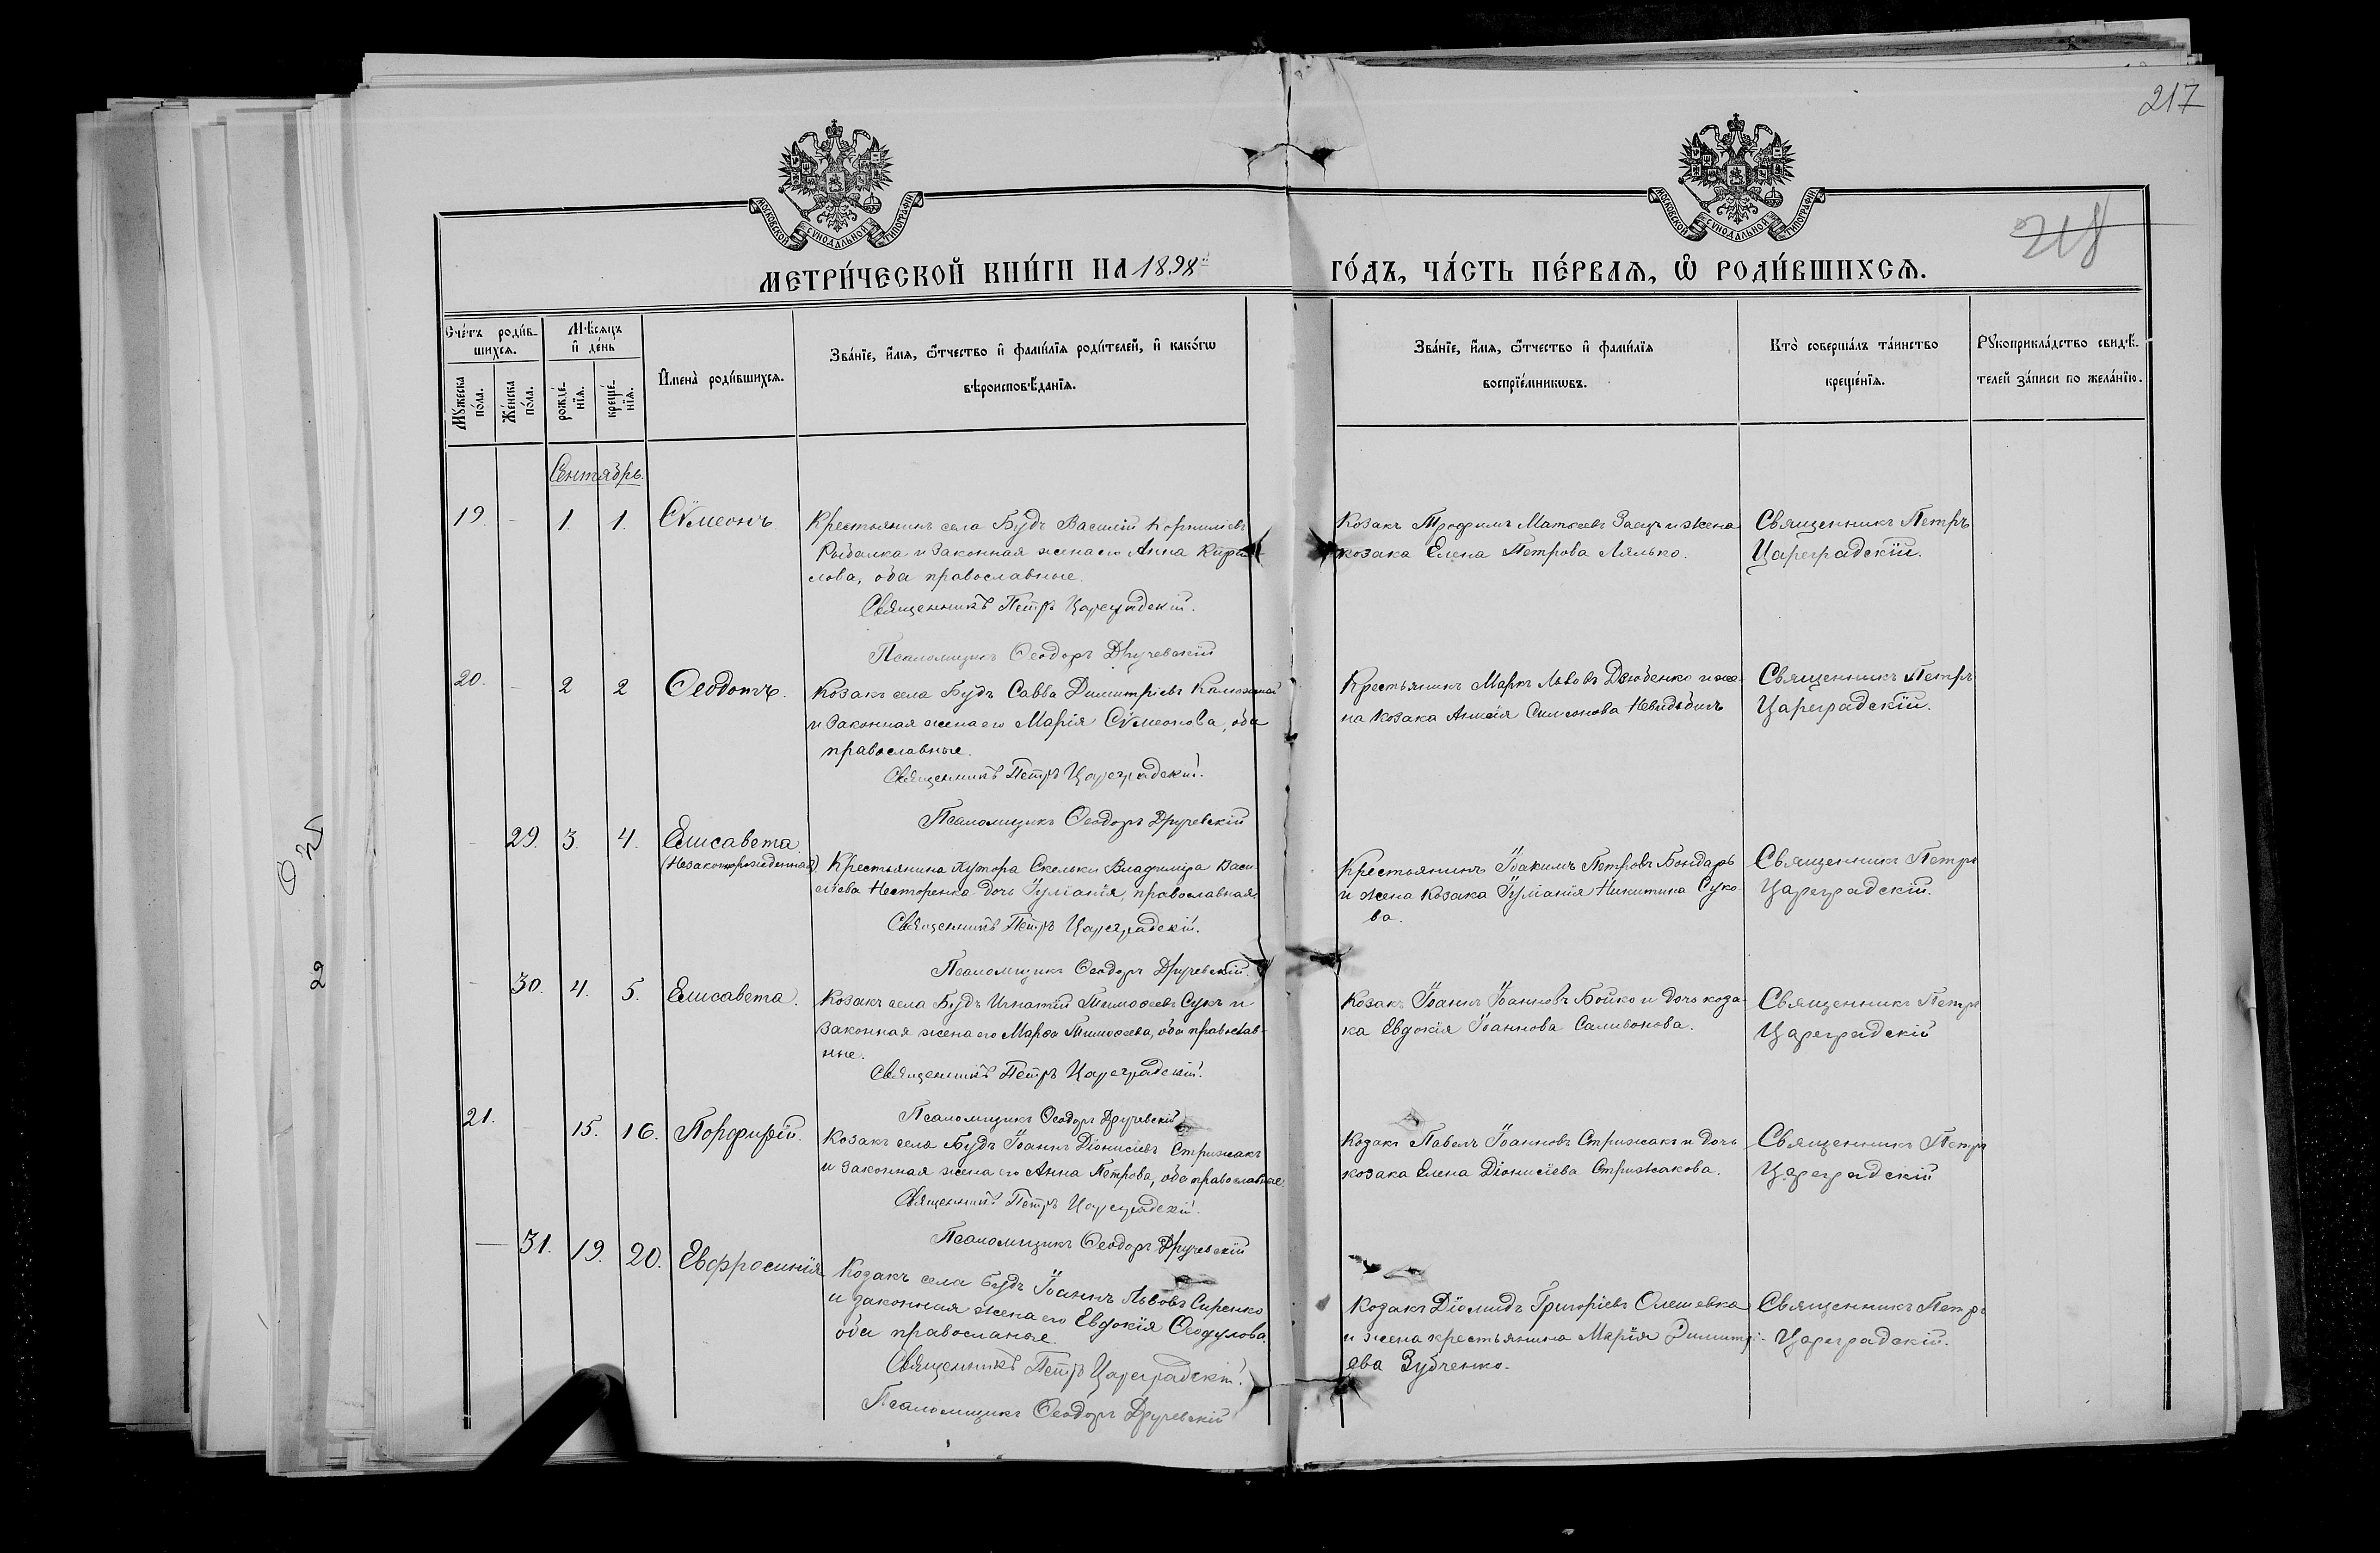 217
218
МОСКОВСКОЙ СѴНОДАЛЬНОЙ ТИПОГРАФІИ
МОСКОВСКОЙ СѴНОДАЛЬНОЙ ТИПОГРАФІИ
МЕТРИ́ЧЕСКОЙ КНИ́ГИ НА 1898й ГО́ДЪ, ЧА́СТЬ ПЕ́РВАѦ, Ѽ РОДИ́ВШИХСѦ.
Сче́тъ роди́в-
шихсѧ.
Мꙋжеска
по́ла.
Же́нска
по́ла.
Мѣ́сѧцъ
и҆ де́нь
рожде́-
нїѧ.
креще́-
нїѧ.
И҆мена̀ роди́вшихсѧ.
Зва́нїе, и҆́мѧ, ѻ҆́тчество и҆ фами́лїѧ роди́телей, и҆ како́гѡ
вѣроисповѣ́данїѧ.
Зва́нїе, и҆́мѧ, ѻ҆́тчество и҆ фами́лїѧ
воспрїе́мникѡвъ.
Кто̀ соверша́лъ та́инство
креще́нїѧ.
Рꙋкоприкла́дство свидѣ́-
телей за́писи по жела́нїю.
Сентябрь.
19. - 1. 1. Сѵмеонъ.
Крестьянинъ села Будъ Василій Корниліевъ
Рыбалка и законная жена его Анна Кири-
лова, оба православные.
Священникъ Петръ Цареградскій.
Псаломщикъ Ѳеодоръ Дручевскій
Козакъ Трофимъ Матѳеевъ Заецъ и жена
козака Елена Петрова Лялько.
Священникъ Петръ
Цареградскій.
20. - 2 2 Ѳеодотъ.
Козакъ села Будъ Савва Димитріевъ
и законная жена его Марія Сѵмеонова, оба
православные.
Священникъ Петръ Цареградскій.
Псаломщикъ Ѳеодоръ Дручевскій
Крестьянинъ Маркъ Львовъ Дзюбенко и же-
на козака Симеонова
Священникъ Петръ
Цареградскій.
- 29. 3. 4. Елисавета.
(Незаконнорожденная)
Крестьянина хутора Скельки Владиміра Васи-
лiева Несторенка дочь Іуліанія, православная.
Священникъ Петръ Цареградскій.
Псаломщикъ Ѳеодоръ Дручевскій.
Крестьянинъ Іоакимъ Петровъ Бондарь
и жена козака Іуліанія Никитина Суко-
ва.
Священникъ Петръ
Цареградскій.
- 30. 4. 5. Елисавета.
Козакъ села Будъ Игнатій Тимоѳеевъ Сукъ и
законная жена его Марѳа Тимоѳеева, оба православ-
ные.
Священникъ Петръ Цареградскій.
Псаломщикъ Ѳеодоръ Дручевскій
Козакъ Іоаннъ Іоанновъ Бойко и дочь коза-
ка Евдокія Іоаннова Саливонова.
Священникъ Петръ
Цареградскій
21. - 15. 16. Порфирій.
Козакъ села Будъ Іоаннъ Діонисіевъ Стрижакъ
и законная жена его Анна Петрова, оба православные.
Священникъ Петръ Цареградскій.
Псаломщикъ Ѳеодоръ Дручевскій
Козакъ Павелъ Іоанновъ Стрижакъ и дочь
козака Елена Діонисіева Стрижакова.
Священникъ Петръ
Цареградскій
— 31. 19. 20. Евфросинія
Козакъ села Будъ Іоаннъ Львовъ Сиренко
и законная жена его Евдокія Ѳеодулова,
оба православные.
Священникъ Петръ Цареградскій.
Псаломщикъ Ѳеодоръ Дручевскій
Козакъ Діомидъ Григоріевъ Олешевка
и жена крестьянина Марія Димитрі-
ева Зубченко.
Священникъ Петръ
Цареградскій.